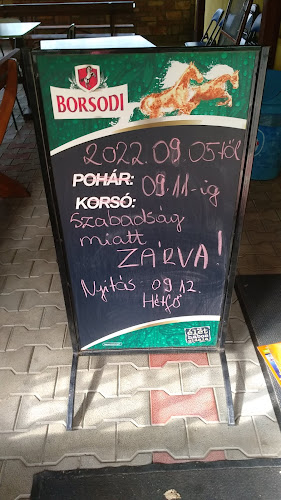 BORSODI
2022.09.05-től
POHÁR: 09.11-ig
KORSÓ:
Szabadság
miatt
ZÁRVA!
Nyitás 09.12.
Hétfő